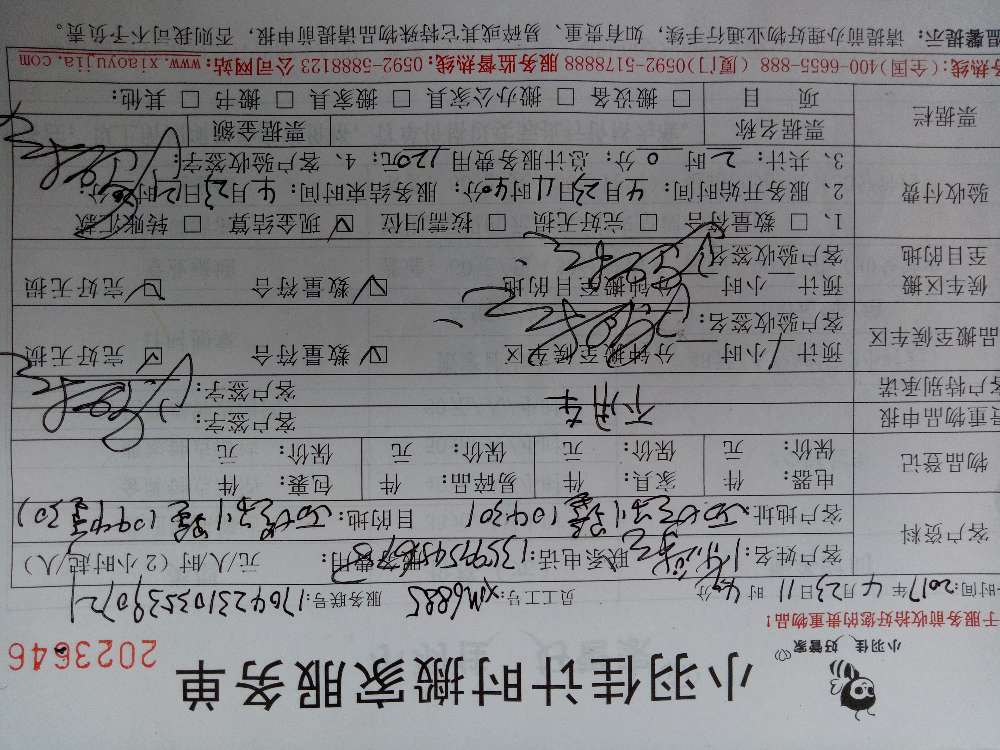 小羽佳计时搬家服务单
2023646
小羽佳 好管家
于服务前收拾好您的贵重物品!
时间:2017年4月23日11时 分 员工号:XM6885 服务联号:
客户资料
客户姓名: 联系电话: 服务费用: 元/人/时(2小时起/人)
客户地址: 目的地:
物品登记
电器: 件 家具: 件 易碎品: 件 包裹: 件
保价: 元 保价: 元 保价: 元 保价: 元
贵重物品申报 客户签字:
客户特别承诺 不用车 客户签字:
品搬至候车区
预计 1 小时 分钟搬至候车区 ☑ 数量符合 ☑ 完好无损
客户签名:
候车区搬至目的地
预计 小时 分钟搬至目的地 ☑ 数量符合 ☑ 完好无损
客户验收签名:
验收付费
1、□ 数量符合 □ 完好无损 □ 按需归位 ☑ 现金结算 □ 转账汇款
2、服务开始时间:4月23日11时40分; 服务结束时间:4月23日 时 分
3、共计:2时0分; 总计服务费用120元; 4、客户验收签字:
票据栏
票据名称 票据金额
项目 □ 搬设备 □ 搬办公家具 □ 搬家具 □ 搬书 □ 其他:
务热线:(全国)400-6655-888 (厦门)0592-5178888 服务监督热线:0592-5888123 公司网站:www.xiaoyujia.com
品馨提示: 请提前办理好物业通行手续, 如有贵重、易碎或其它特殊物品请提前申报, 否则我司不予负责。